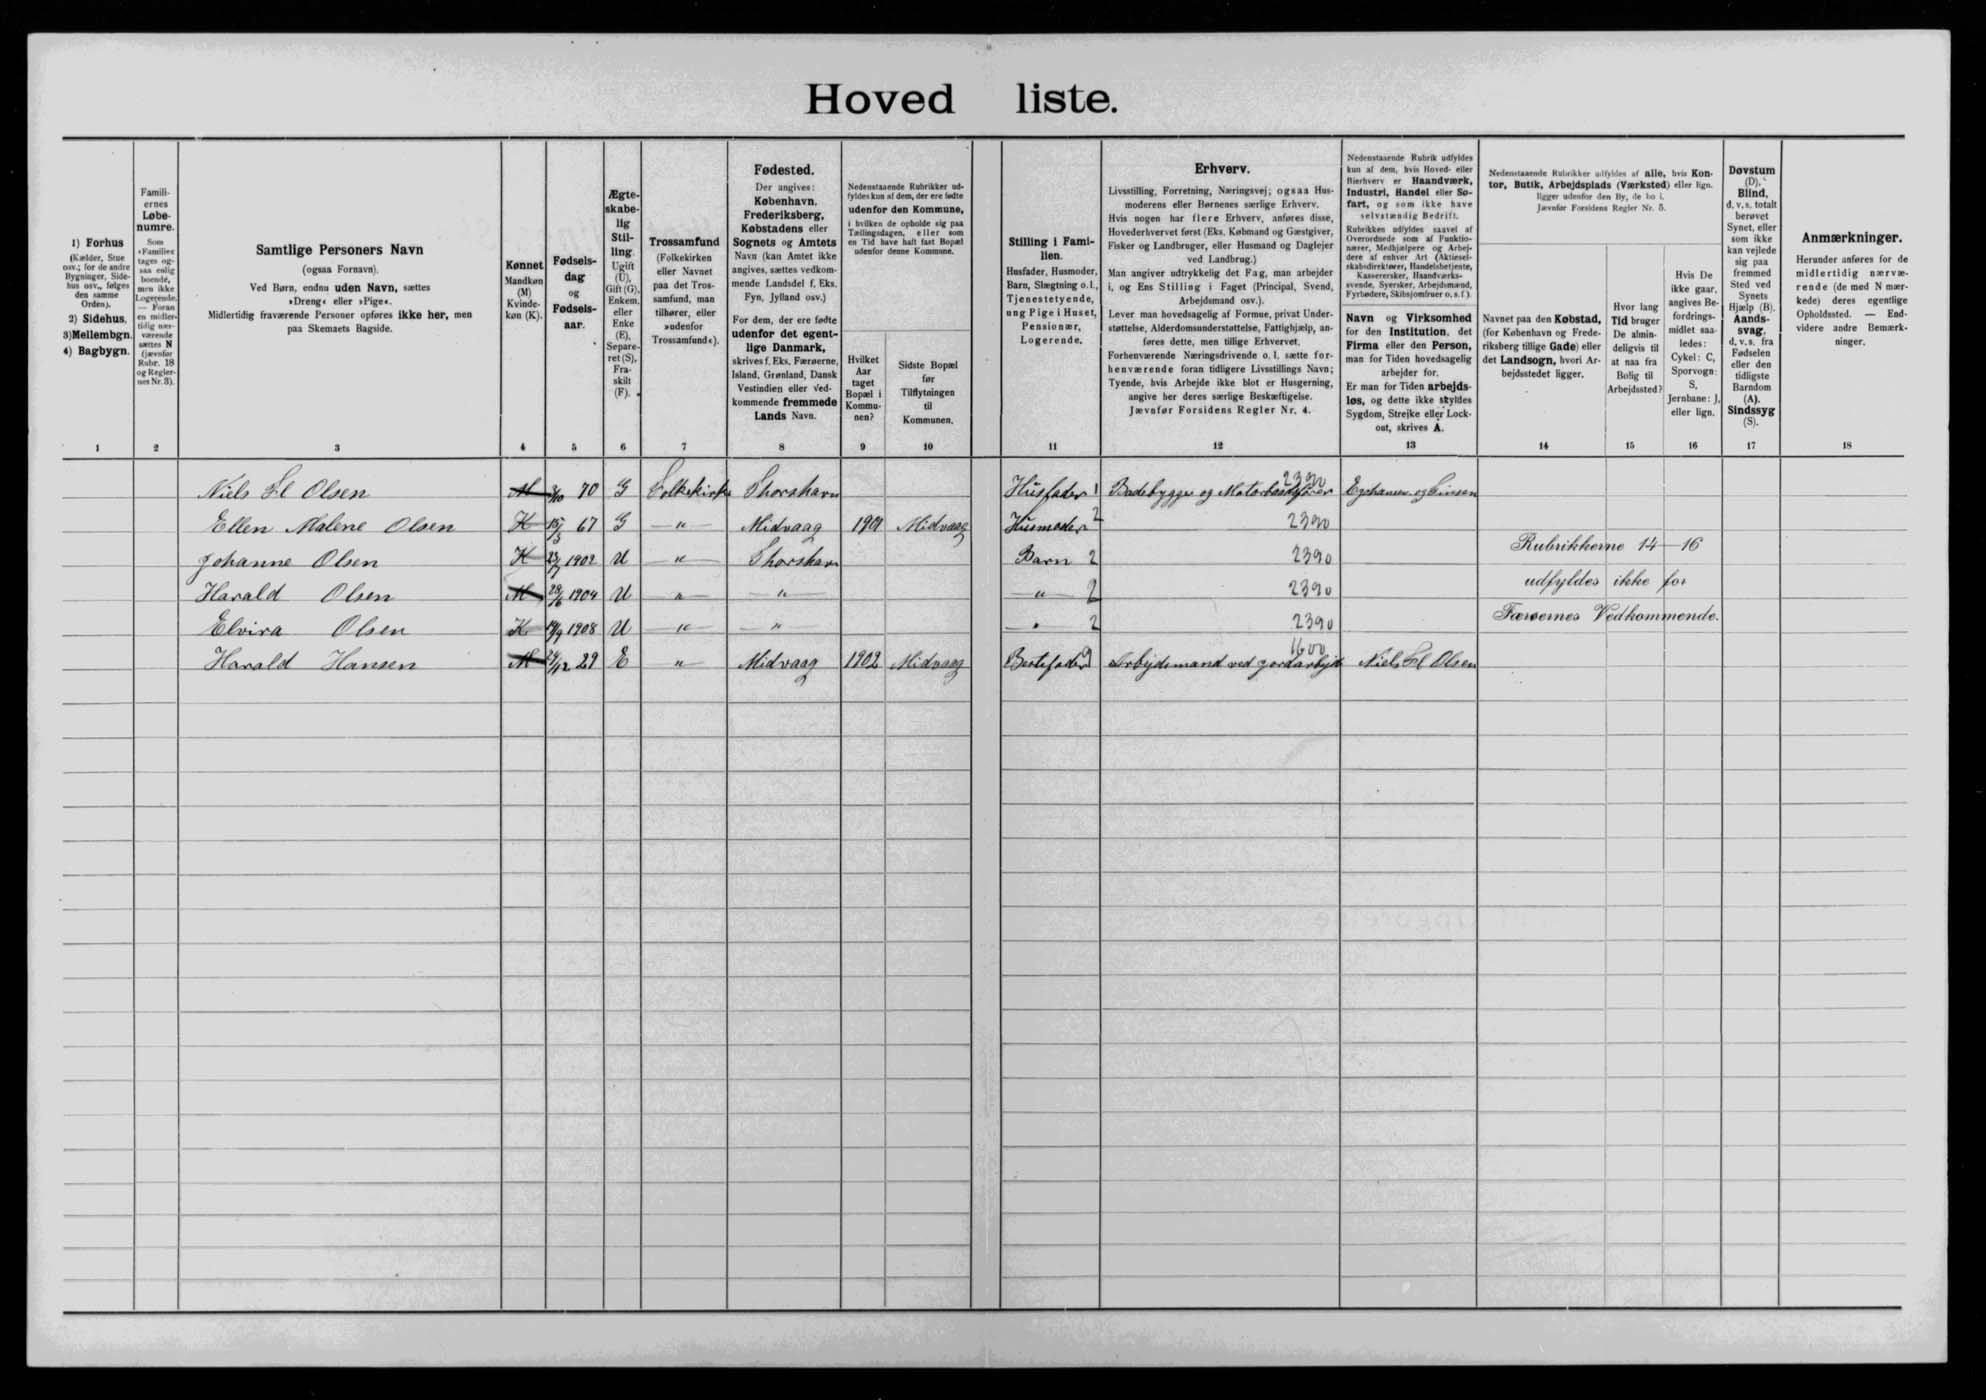 Hoved liste.
1) Forhus
(Kælder, Stue
osv.; for de andre
Bygninger, Side-
hus osv., følges
den samme
Orden).
2) Sidehus.
3) Mellembgn.
4) Bagbygn.
Famili-
ernes
Løbe-
numre.
Som
»Familie«
tages og-
saa enlig
boende,
men ikke
Logerende.
— Foran
en midler-
tidig nær-
værende
sættes N
(jævnfør
Rubr. 18
og Regler-
nes Nr. 3).
Samtlige Personers Navn
(ogsaa Fornavn).
Ved Børn, endnu uden Navn, sættes
»Dreng« eller »Pige«.
Midlertidig fraværende Personer opføres ikke her, men
paa Skemaets Bagside.
Kønnet
Mandkøn
(M)
Kvinde-
køn (K).
Fødsels-
dag
og
Fødsels-
aar.
Ægte-
skabe-
lig
Stil-
ling.
Ugift
(U),
Gift (G),
Enkem.
eller
Enke
(E),
Separe-
ret (S),
Fra-
skilt
(F).
Trossamfund
(Folkekirken
eller Navnet
paa det Tros-
samfund, man
tilhører, eller
»udenfor
Trossamfund«).
Fødested.
Der angives:
København.
Frederiksberg,
Købstadens eller
Sognets og Amtets
Navn (kan Amtet ikke
angives, sættes vedkom-
mende Landsdel f. Eks.
Fyn, Jylland osv.)
For dem, der ere fødte
udenfor det egent-
lige Danmark,
skrives f. Eks. Færøerne,
Island, Grønland, Dansk
Vestindien eller ved-
kommende fremmede
Lands Navn.
Nedenstaaende Rubrikker ud-
fyldes kun af dem, der ere fødte
udenfor den Kommune,
i hvilken de opholde sig paa
Tællingsdagen, eller som
en Tid have haft fast Bopæl
udenfor denne Kommune.
Hvilket
Aar
taget
Bopæl i
Kommu-
nen?
Sidste Bopæl
før
Tilflytningen
til
Kommunen.
Stilling i Fami-
lien.
Husfader, Husmoder,
Barn, Slægtning o.l.,
Tjenestetyende,
ung Pige i Huset,
Pensionær,
Logerende.
Erhverv.
Livsstilling, Forretning, Næringsvej; ogsaa Hus-
moderens eller Børnenes særlige Erhverv.
Hvis nogen har flere Erhverv, anføres disse,
Hovederhvervet først (Eks. Købmand og Gæstgiver,
Fisker og Landbruger, eller Husmand og Daglejer
ved Landbrug.)
Man angiver udtrykkelig det Fag, man arbejder
i, og Ens Stilling i Faget (Principal, Svend,
Arbejdsmand osv.).
Lever man hovedsagelig af Formue, privat Under-
støttelse, Alderdomsunderstøttelse, Fattighjælp, an-
føres dette, men tillige Erhvervet.
Forhenværende Næringsdrivende o. l. sætte for-
henværende foran tidligere Livsstillings Navn;
Tyende, hvis Arbejde ikke blot er Husgerning,
angive her deres særlige Beskæftigelse.
Jævnfør Forsidens Regler Nr. 4.
Nedenstaaende Rubrik udfyldes
kun af dem, hvis Hoved- eller
Bierhverv er Haandværk,
Industri, Handel eller Sø-
fart, og som ikke have
selvstændig Bedrift.
Rubrikken udfyldes saavel af
Overordnede som af Funktio-
nærer, Medhjælpere og Arbej-
dere af enhver Art (Aktiesel-
skabsdirektører, Handelsbetjente,
Kasserersker, Haandværks-
svende, Syersker, Arbejdsmænd,
Fyrbødere, Skibsjomfruer o. s. f.).
Navn og Virksomhed
for den Institution, det
Firma eller den Person,
man for Tiden hovedsagelig
arbejder for.
Er man for Tiden arbejds-
løs, og dette ikke skyldes
Sygdom, Strejke eller Lock-
out, skrives A.
Nedenstaaende Rubrikker udfyldes af alle, hvis Kon-
tor, Butik, Arbejdsplads (Værksted) eller lign.
ligger udenfor den By, de bo i.
Jævnfør Forsidens Regler Nr. 5.
Navnet paa den Købstad,
(for København og Frede-
riksberg tillige Gade) eller
det Landsogn, hvori Ar-
bejdsstedet ligger.
Hvor lang
Tid bruger
De almin-
deligvis til
at naa fra
Bolig til
Arbejdssted?
Hvis De
ikke gaar,
angives Be-
fordrings-
midlet saa-
ledes:
Cykel: C,
Sporvogn:
S,
Jernbane: J,
eller lign.
Døvstum
(D).
Blind,
d. v. s. totalt
berøvet
Synet, eller
som ikke
kan vejlede
sig paa
fremmed
Sted ved
Synets
Hjælp (B).
Aands-
svag,
d. v. s. fra
Fødselen
eller den
tidligste
Barndom
(A).
Sindssyg
(S).
Anmærkninger.
Herunder anføres for de
midlertidig nærvæ-
rende (de med N mær-
kede) deres egentlige
Opholdssted. — End-
videre andre Bemærk-
ninger.
1 2 3 4 5 6 7 8 9 10 11 12 13 14 15 16 17 18
Niels Olsen M 70 G Folkekirke Thorshavn Husfader 1 Baadebygger og 2390
Ellen Malene Olsen K 15/3 67 G — " — Midvaag 1901 Midvaag Husmoder 2 2390
Johanne Olsen K 23/7 1902 U — " — Thorshavn Barn 2 2390 Rubrikkerne 14—16
Harald Olsen M 28/6 1904 U — " — — " — — " — 2 2390 udfyldes ikke for
Elvira Olsen K 19/9 1908 U — " — — " — " 2 2390 Færøernes Vedkommende.
Harald Hansen M 24/12 29 E — " — Midvaag 1902 Midvaag Bestefader Arbejdsmand ved jordarbejde 1600 Niels Olsen